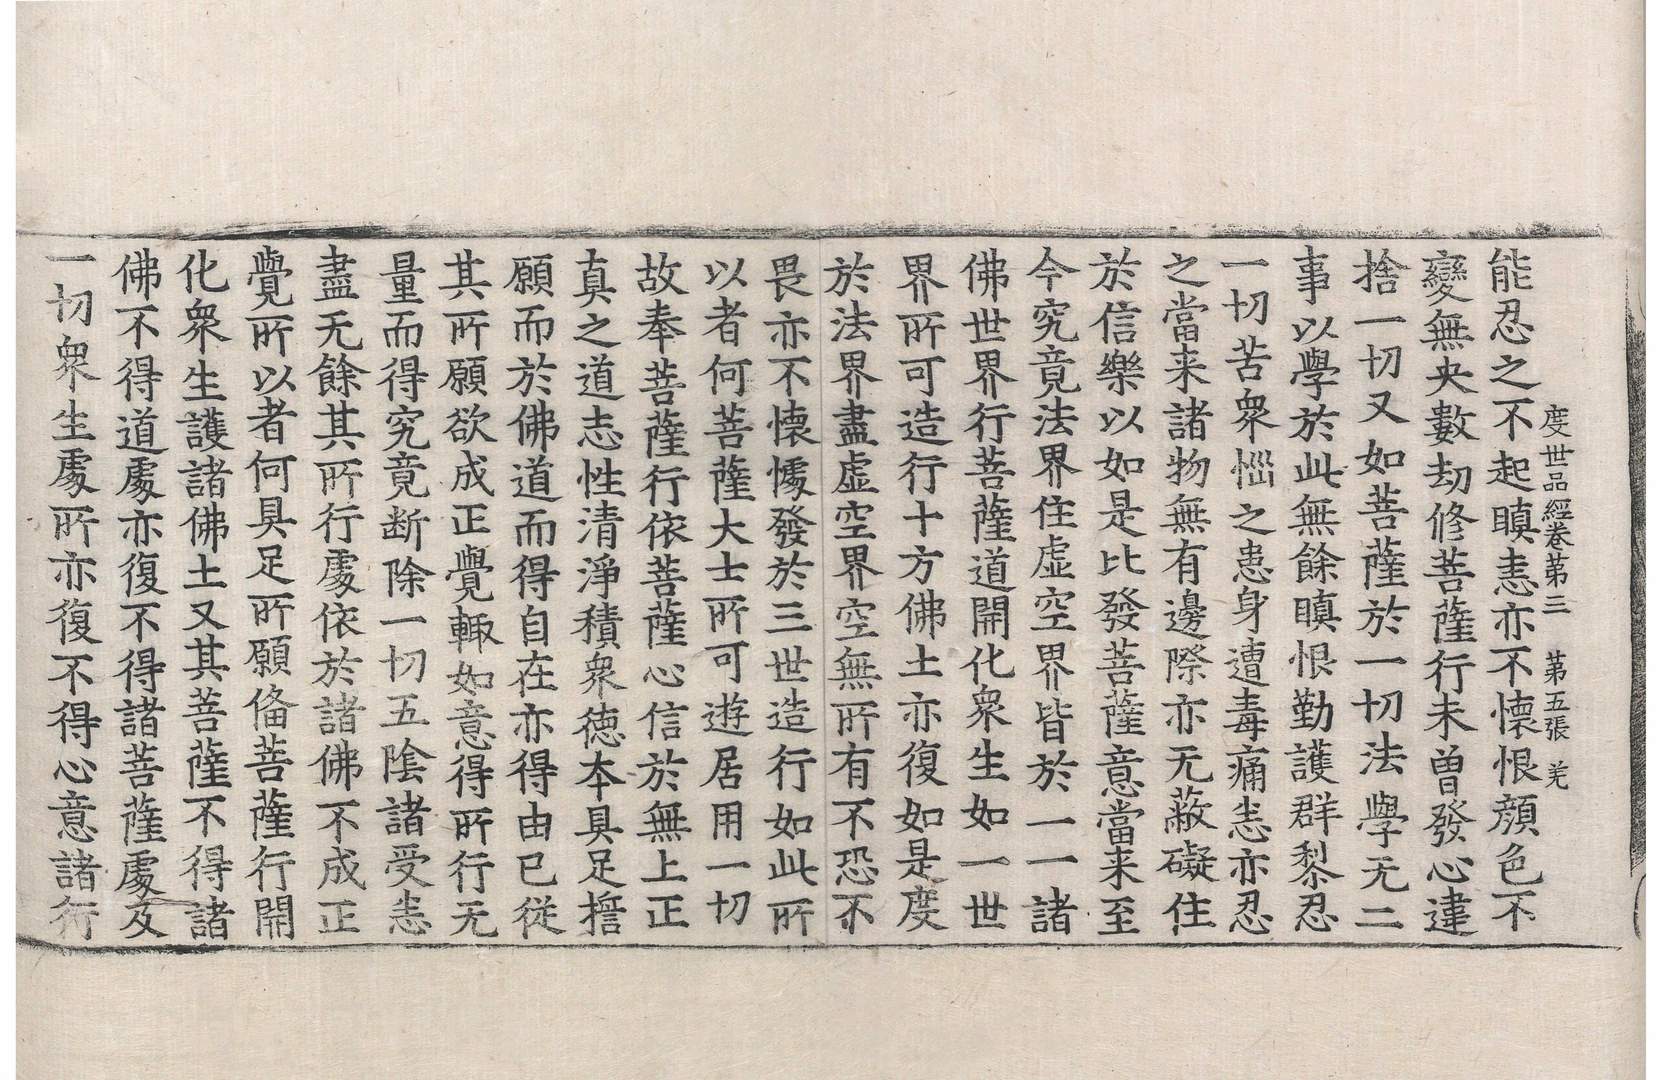 度世品經卷第三　第五張　羌
能忍之不起瞋恚亦不懷恨顔色不
變無央數劫修菩薩行未曽發心違
捨一切又如菩薩於一切法學无二
事以學於此無餘瞋恨勤護群黎忍
一切苦衆惱之患身遭毒痛恚亦忍
之當来諸物無有邊際亦无蔽礙住
於信樂以如是比發菩薩意當来至
今究竟法界住虚空界皆於一一諸
佛世界行菩薩道開化衆生如一世
界所可造行十方佛土亦復如是度
於法界盡虚空界空無所有不恐不
畏亦不懷懅發於三世造行如此所
以者何菩薩大士所可遊居用一切
故奉菩薩行依菩薩心信於無上正
真之道志性清淨積衆德本具足擔
願而於佛道而得自在亦得由已從
其所願欲成正覺輙如意得所行无
量而得究竟断除一切五陰諸受恚
盡无餘其所行處依於諸佛不成正
覺所以者何具足所願俻菩薩行開
化衆生護諸佛土又其菩薩不得諸
佛不得道處亦復不得諸菩薩處及
一切衆生處所亦復不得心意諸行